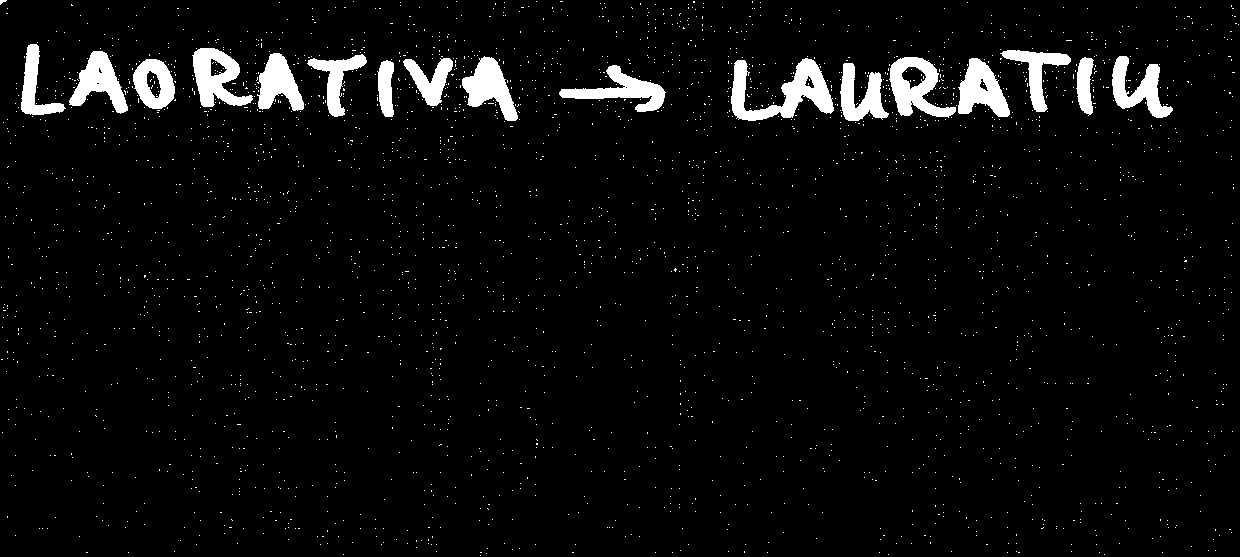 LAORATIVA → LAURATIU